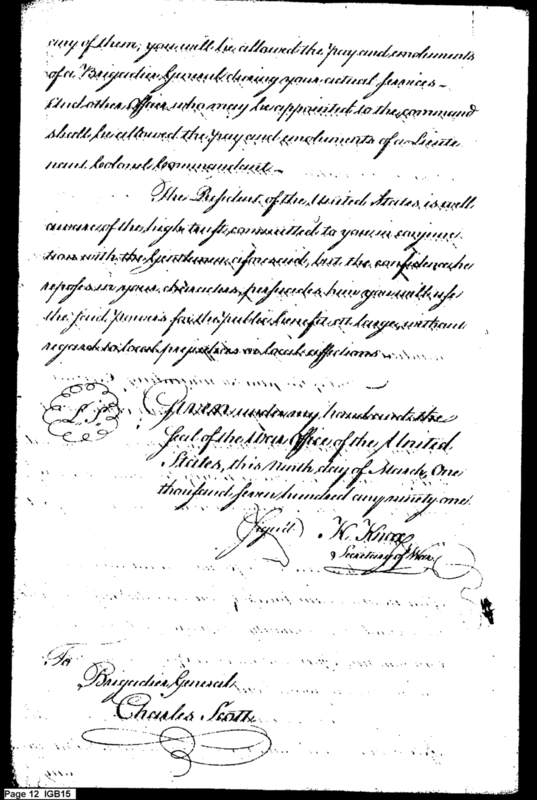 any of them; you will be allowed the pay and emoluments
of a Brigadier General during your actual services –
And other Officer who may be appointed to the command
shall be allowed the pay and emoluments of a Lieute
nant Colonel Commandant –
The President of the United States is well
aware of the high trust committed to you in conjunc
tion with the Gentlemen aforesaid, but the confidence he
reposes in your character, persuades him you will use
the said powers for the public benefit at large, without
regard to local prejudices or local affections
L.S.
Given under my hand and the
Seal of the War Office of the United
States, this Ninth day of March, One
thousand seven hundred any ninety one.
(Signed) H. Knox
Secretary of War
To
Brigadier General
Charles Scott
Page 12 IGB15